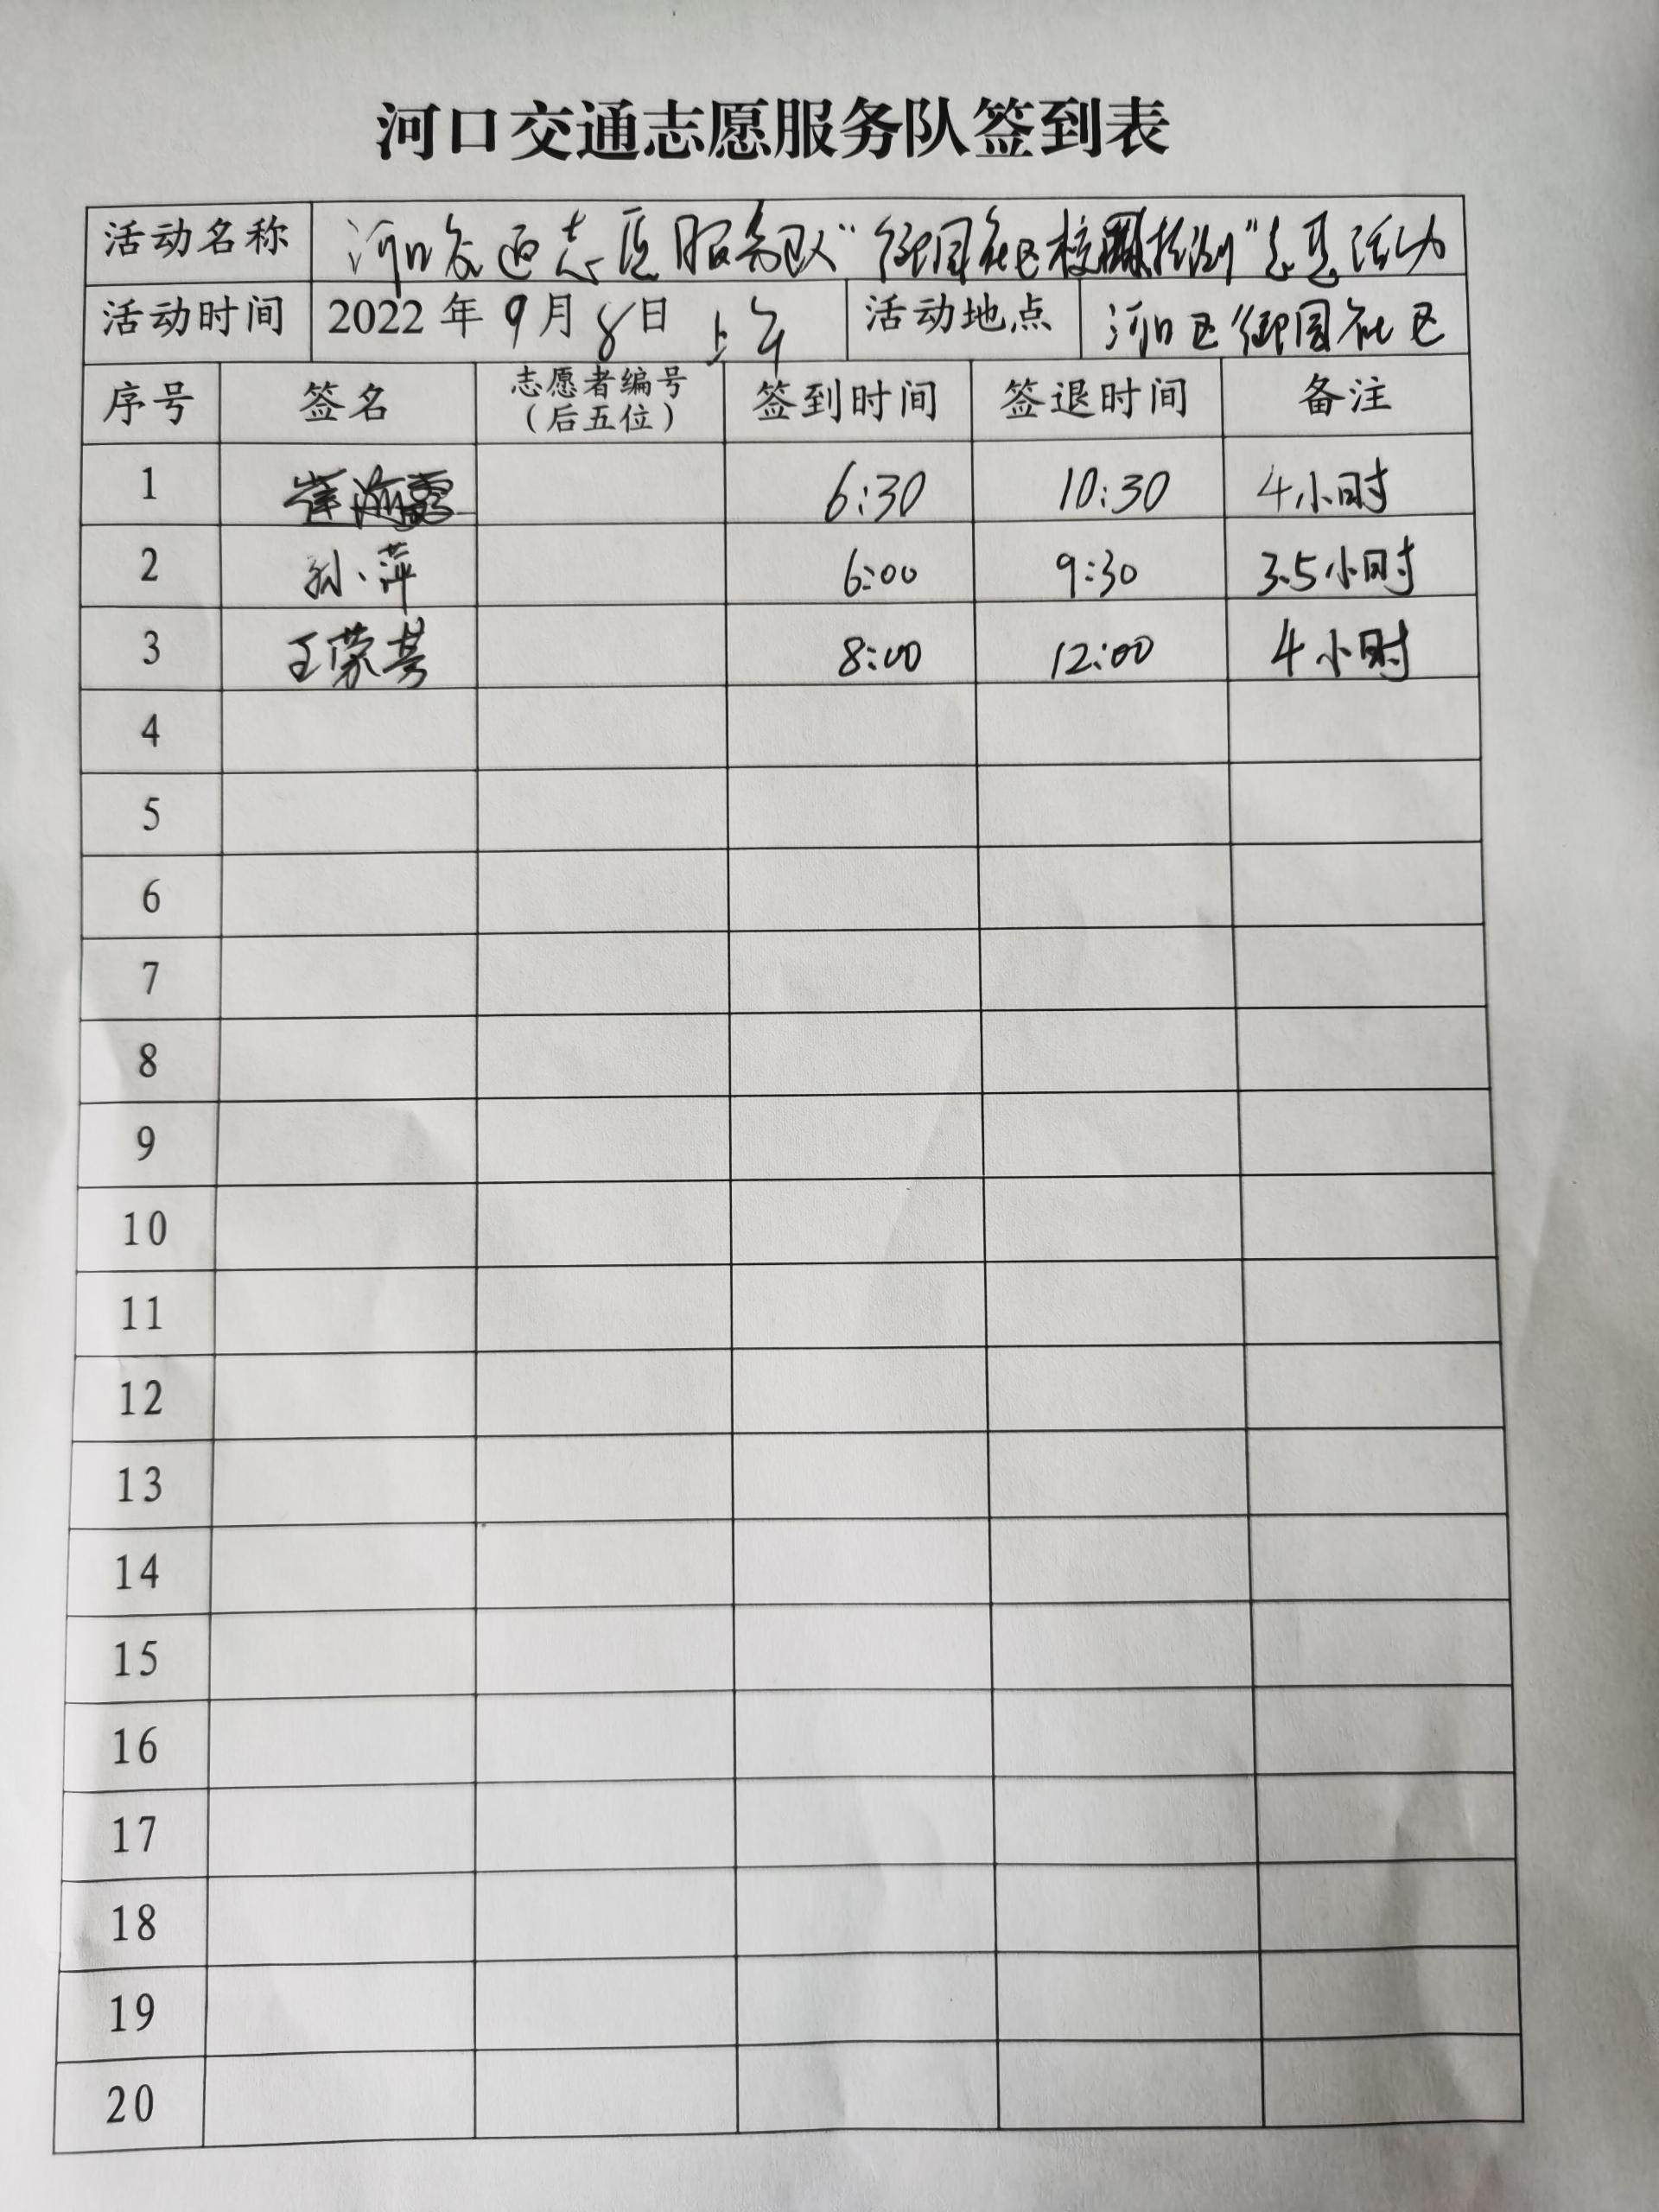 河口交通志愿服务队签到表
活动名称 河口交通志愿服务队“御园社区核酸检测”志愿活动
活动时间 2022年9月8日 上午 活动地点 河口区御园社区
序号 签名 志愿者编号（后五位） 签到时间 签退时间 备注
1 崔 露 6:30 10:30 4小时
2 孙萍 6:00 9:30 3.5小时
3 王蒙 8:00 12:00 4小时
4
5
6
7
8
9
10
11
12
13
14
15
16
17
18
19
20